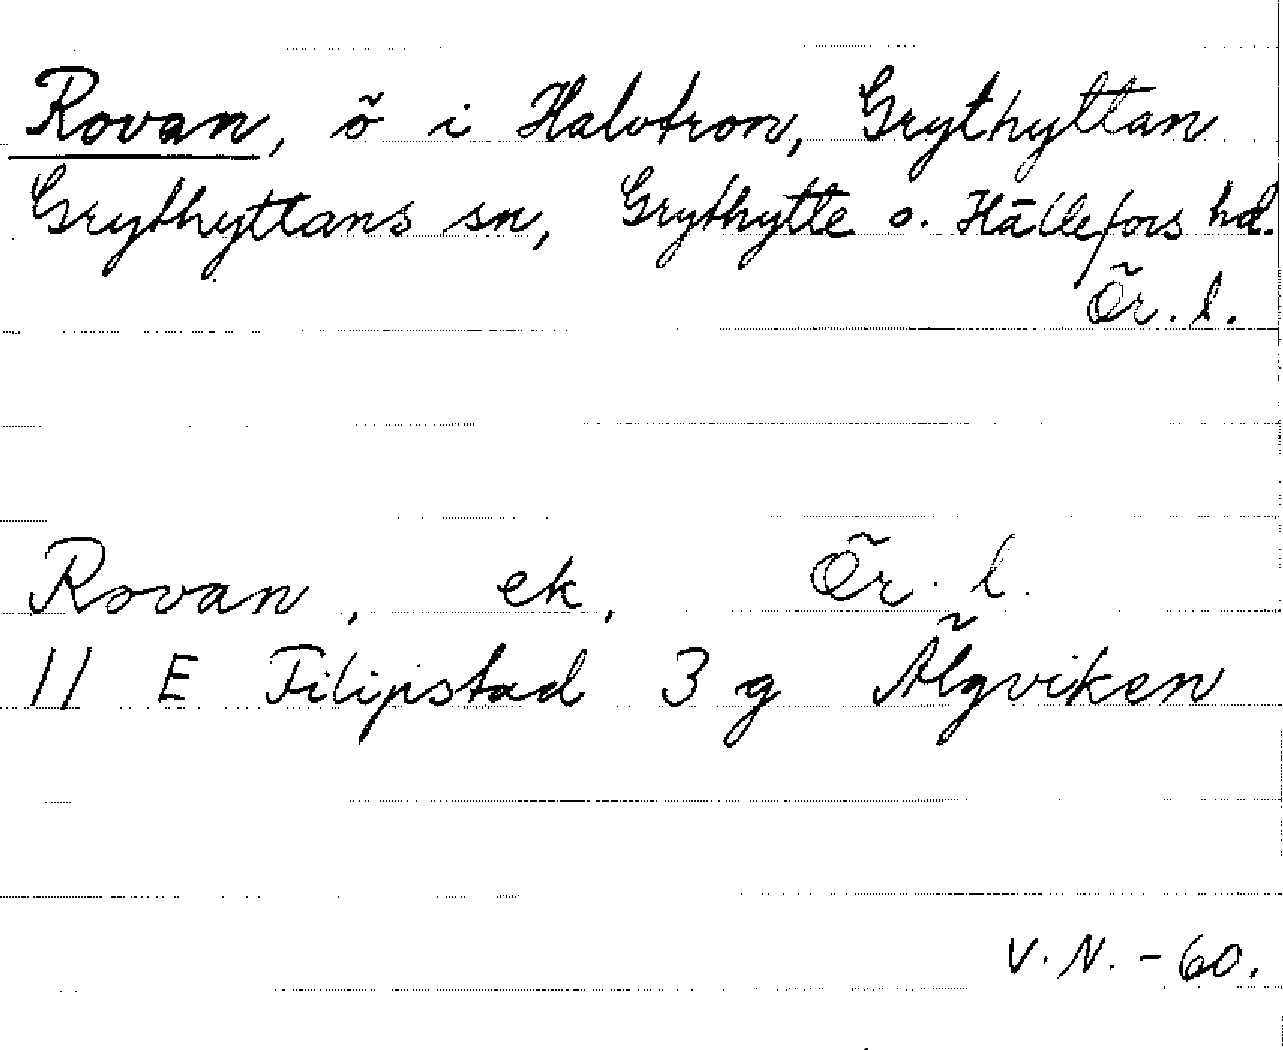 Rovan, ö i Halvtron, Grythyttan
Grythyttans sn, Grythytte o. Hällefors hd.
Ör. l.
Rovan, ek, Ör. l.
11 E Filipstad 3 g Älgviken
V. N. - 60.